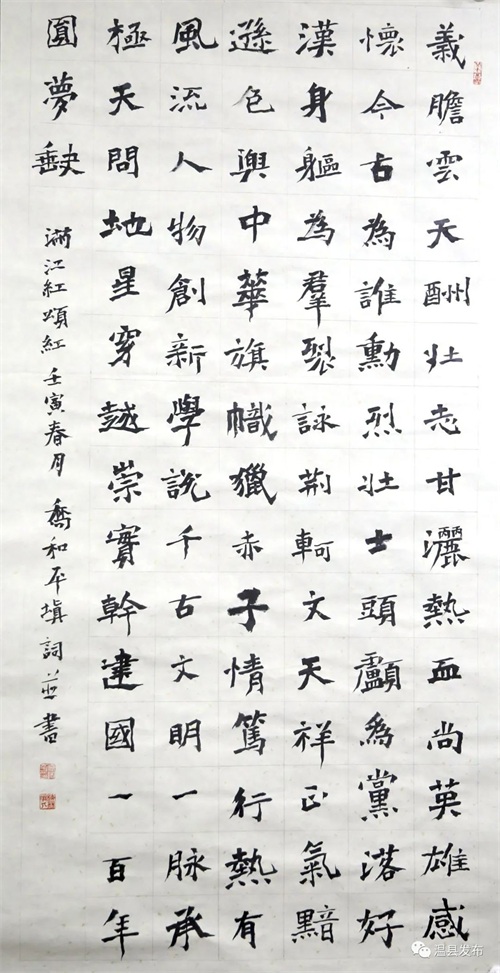 義膽雲天酬壯志甘灑熱血尚英雄感
懷今古為誰勳烈壯士頭顱為黨落好
漢身軀為羣裂詠荊軻文天祥正氣黯
遜色興中華旗幟獵赤子情篤行熱有
風流人物創新學說千古文明一脈承
極天問地星穿越崇實幹建國一百年
圓夢缺
滿江紅頌紅 壬寅春月 喬和平填詞並書
温县发布